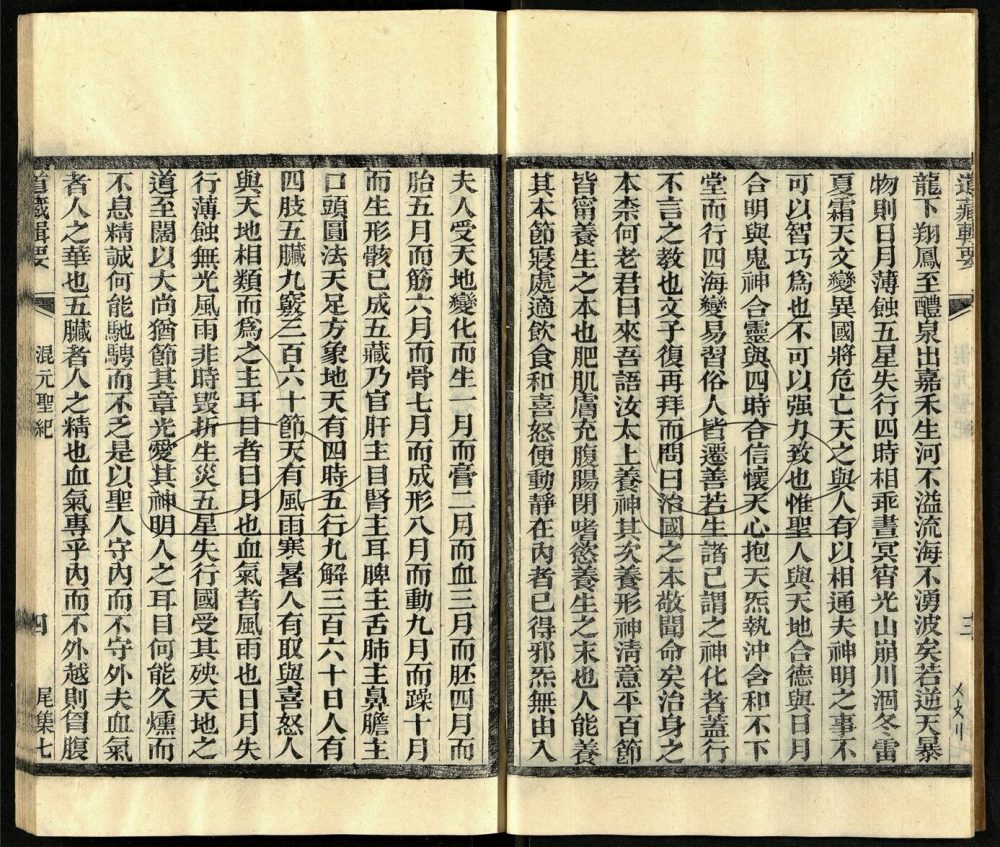 道藏輯要
三
龍下翔鳳至醴泉出嘉禾生河不溢流海不湧波矣若逆天暴
物則日月薄蝕五星失行四時相乖晝冥宵光山崩川涸冬雷
夏霜天文變異國將危亡天之與人有以相通夫神明之事不
可以智巧爲也不可以强力致也惟聖人與天地合德與日月
合明與鬼神合靈與四時合信懷天心抱天炁執沖含和不下
堂而行四海變易習俗人皆遷善若生諸已謂之神化者蓋行
不言之教也文子復再拜而問曰治國之本敬聞命矣治身之
本柰何老君曰來吾語汝太上養神其次養形神淸意平百節
皆甯養生之本也肥肌膚充腹腸閉嗜慾養生之末也人能養
其本節寢處適飲食和喜怒便動靜在內者已得邪炁無由入
夫人受天地變化而生一月而膏二月而血三月而胚四月而
胎五月而筋六月而骨七月而成形八月而動九月而躁十月
而生形骸已成五藏乃官肝主目腎主耳脾主舌肺主鼻膽主
口頭圓法天足方象地天有四時五行九解三百六十日人有
四肢五臟九竅三百六十節天有風雨寒暑人有取與喜怒人
與天地相類而爲之主耳目者日月也血氣者風雨也日月失
行薄蝕無光風雨非時毀折生災五星失行國受其殃天地之
道至闊以大尚猶節其章光愛其神明人之耳目何能久燻而
不息精誠何能馳騁而不乏是以聖人守內而不守外夫血氣
者人之華也五臟者人之精也血氣專乎內而不外越則胷腹
道藏輯要 混元聖紀 四 尾集七